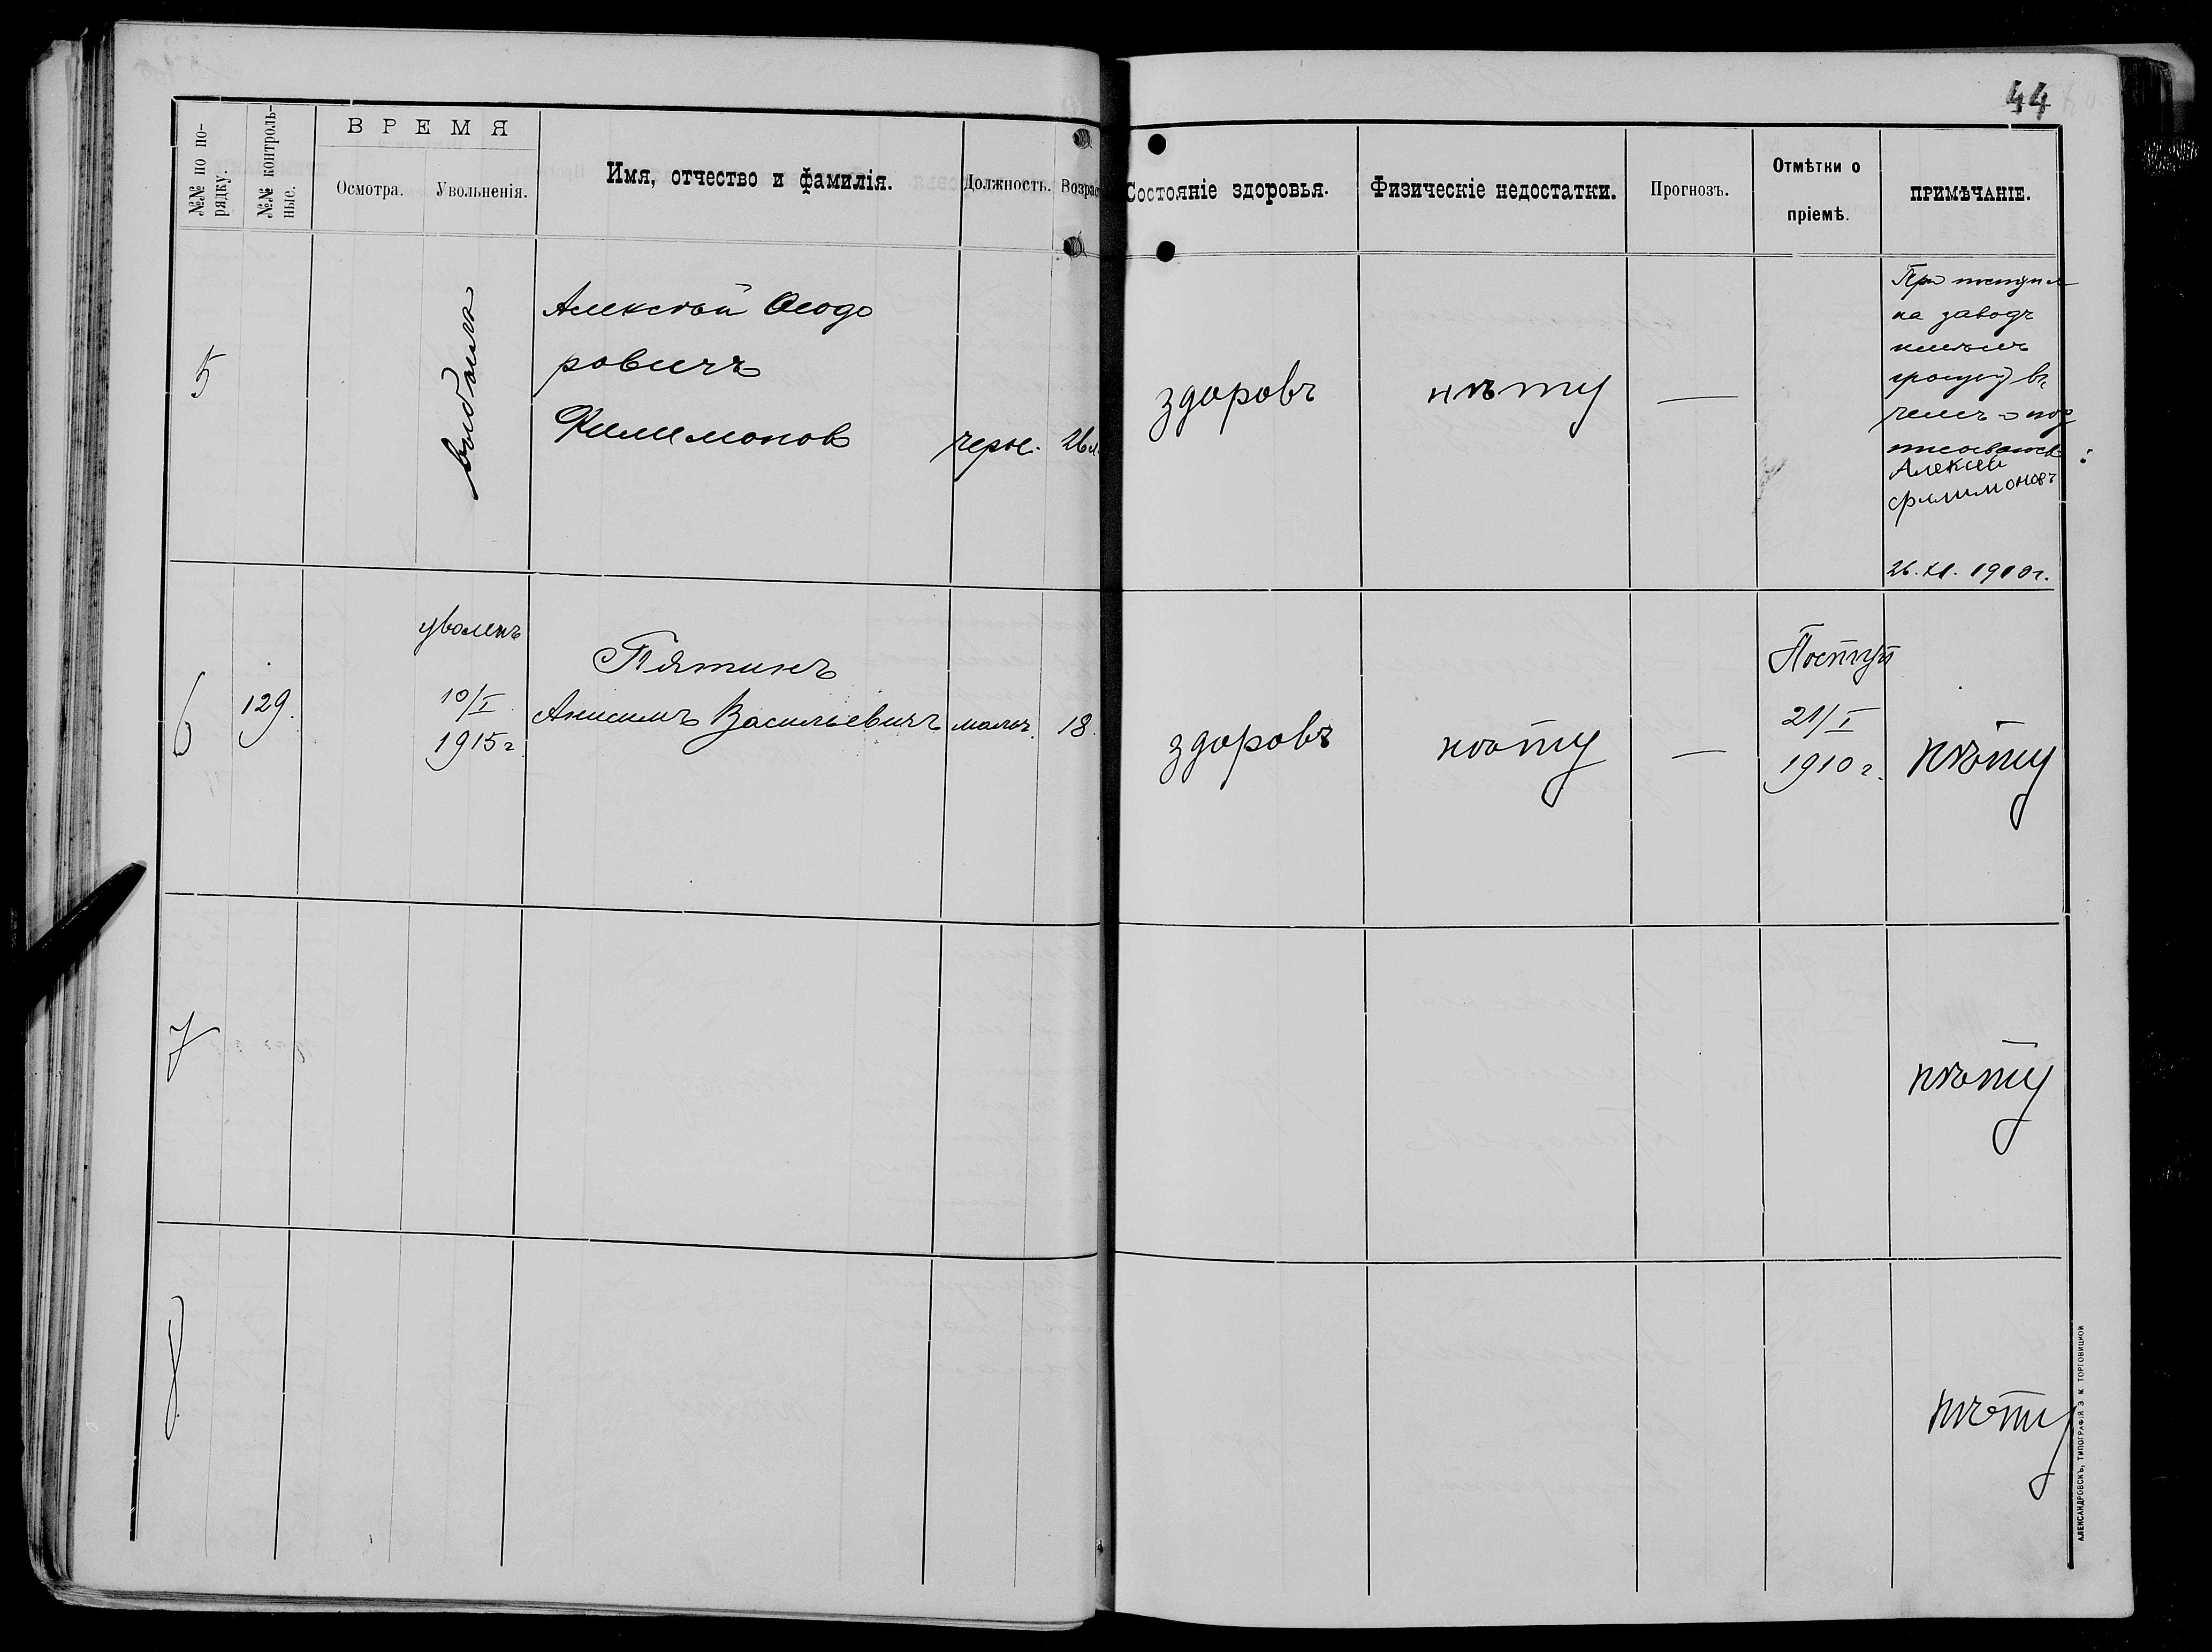 44
№№ по по-
рядку.
№№ контроль-
ные.
ВРЕМЯ
Осмотра.
Увольненія.
Имя, отчество и фамилія.
Должность.
Возрас
Состояніе здоровья.
Физическіе недостатки.
Прогнозъ.
Отмѣтки о
пріемѣ.
ПРИМѢЧАНІЕ.
5
выбылъ
Алексѣй Ѳеодо
ровичъ
Филимонов
черн.
26 л.
здоровъ
нѣту
—
на заводъ
въ
чемъ и под
писываюсь
Алексей
Филимоновъ
26.XI.1910г.
6
129.
уволенъ
10/I
1915г.
Пятинъ
Анисимъ Васильевичъ
мальч.
18.
здоровъ
нѣту
—
Поступ
21/I
1910г.
нѣту
7
нѣту
8
нѣту
АЛЕКСАНДРОВСКЪ, ТИПОГРАФІЯ Э. М. ТОРГОВИЦКОЙ